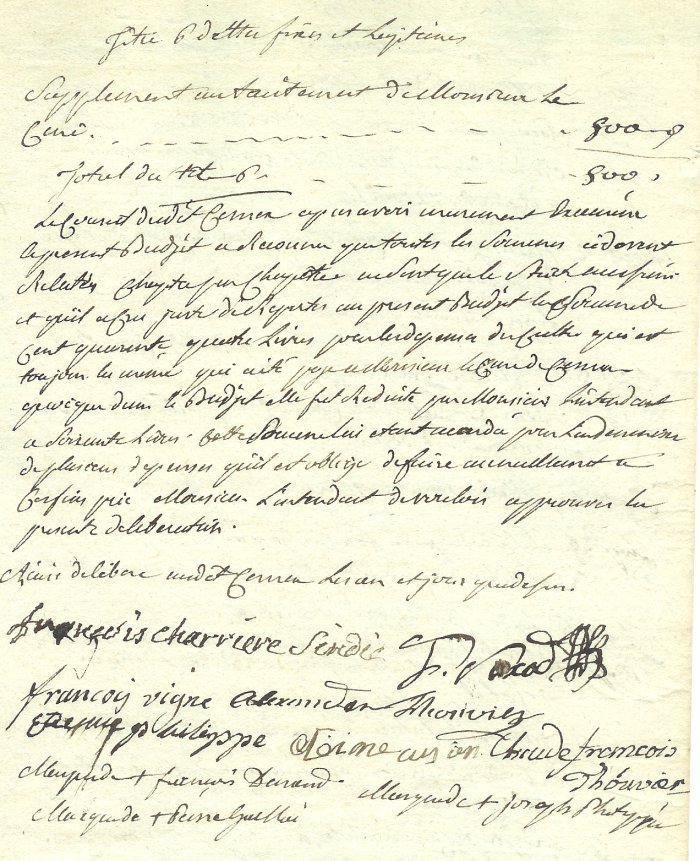 Titre 6 dettes fixes et legitimes
Supplement au traitement de Monsieur Le
Curé. 500
Total du titre 6. 500
Le Conseil dudit apres avoir murement Examiné
le present Budjet a Reconnu que toutes les Sommes ci devant
Relatés Chapitre par Chapitre ne sont que le
et qu'il a Cru juste de Reporter au present Budjet la Somme de
Cent quarente quatre Livres pour les depenses du Culte qui est
toujour la même qui a été payé a Monsieur le Curé de
quoique dans le Budjet elle fut Reduite par Monsieur L'intendant
a Soixante Livres. Cette Somme lui etant accordé pour L'indemniser
de plusieurs depenses qu'il est obligé de faire annuellement a
Ces fins prie Monsieur L'intendant de vouloir approuver la
presente deliberation.
Ainsi deliberé audit Les an et jour que dessus.
françois charriere Sindic
françois vigne Alexander Thouvier
philippe Claude françois
Thouvier
Marque de + françois Durand Marque de + joseph Philippe
Marque de + Pierre